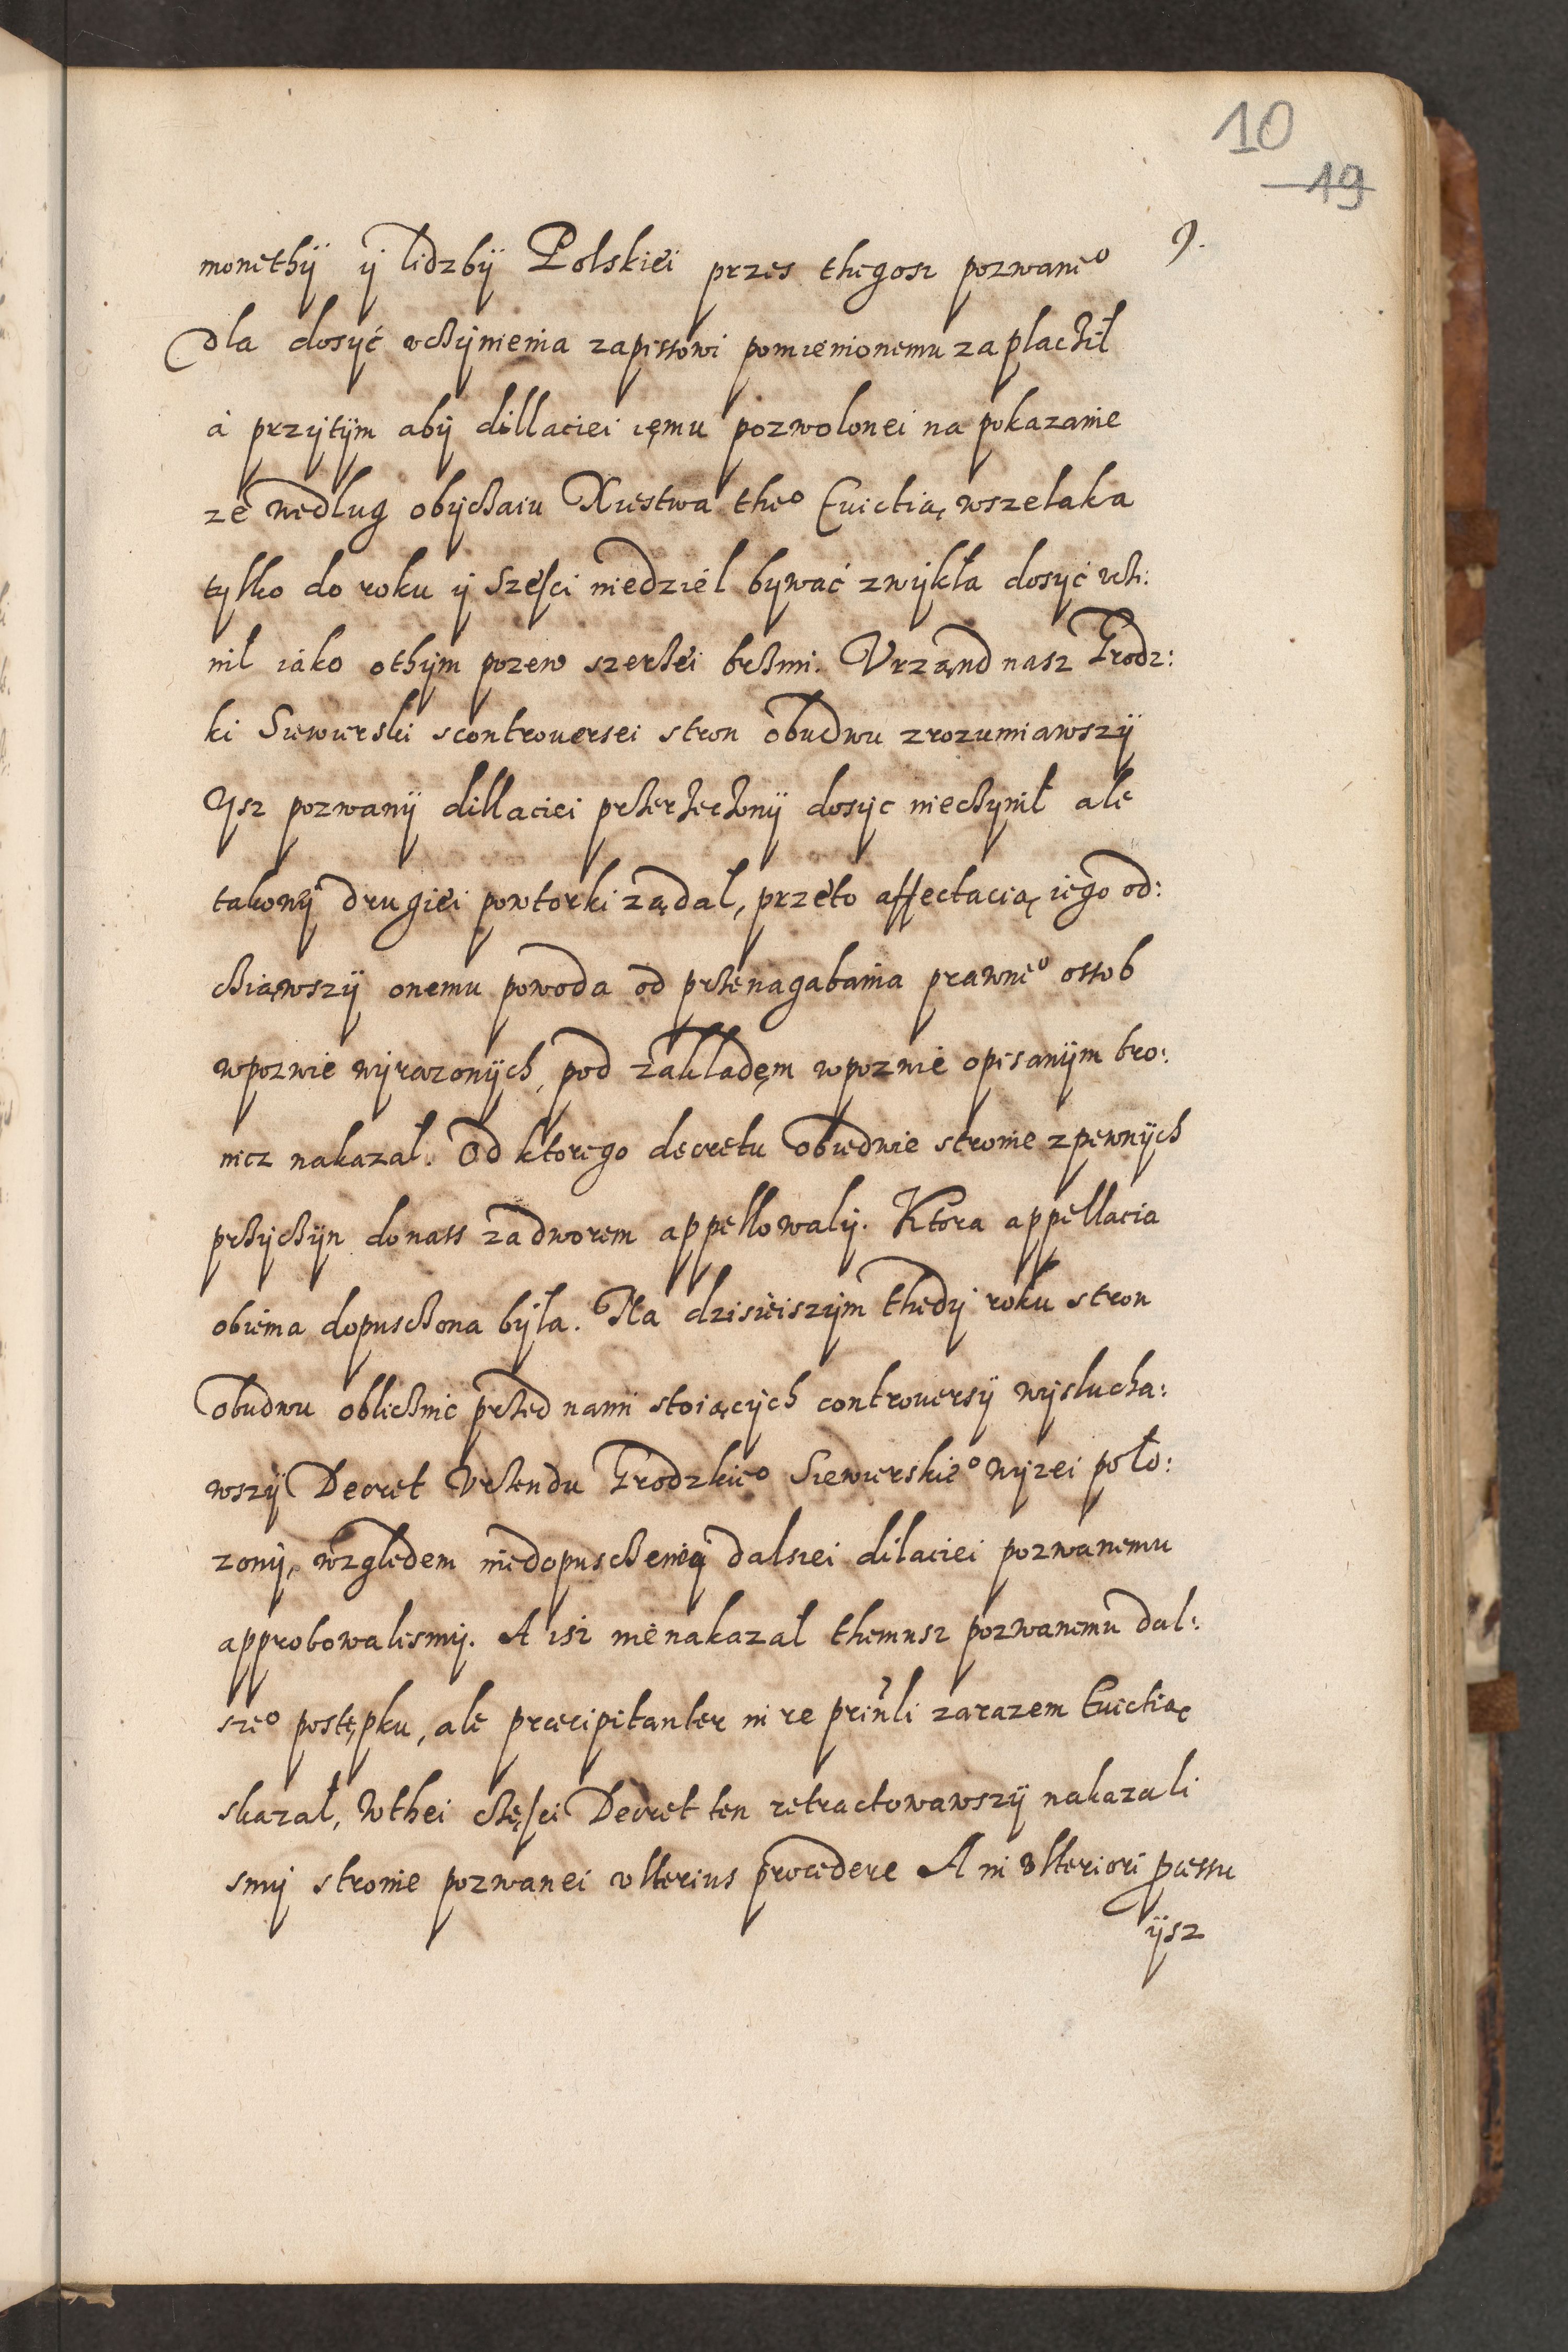 10
19
9.
monethÿ ÿ lidzbÿ Polskiei przes thegosz pozwane°
dla dosyć vchÿnienia zapissowi pomienionemu zaplachił
à przÿtÿm abÿ dillaciei ięmu pozwolonei na pokazanie
ze wedlug obÿchaiu Xiestwa the° Euictią wszelaka
tylko do roku ÿ Sześci niedziel bywać zwÿkła dosyć vchi:
nił iáko othÿm pozew szerhei brhmi. Vrząnd nasz Grodz:
ki Siewierski scontrouersei stron obudwu zrozumiawszÿ
Ysz pozwanÿ dillaciei prherhechonÿ dosÿc niechÿnił ale
takowÿ drugiei powtorki ządal, przeto affectacią iego od:
chiąwszÿ onemu powoda od prhenagabania prawne° ossob
wpozwie wÿrazonÿch, pod zakladęm wpozwie opisanÿm bro:
nicz nakazał. Od ktorego decretu obiedwie stronie zpewnÿch
prhÿchÿn donass zadworem appellowalÿ. Ktora appellacia
obiema dopuschona bÿła. Na dzisieiszÿm thedÿ roku stron
obudwu oblichnie prhed nami stoiącÿch controuersÿ wÿslucha:
wszÿ Decret Vrhendu Grodzkie° Siewierskie° wÿzei poło:
zonÿ, względem niedopuschenia dalsiei dilaciei pozwanemu
approbowalismÿ. A isz nie nakazał themusz pozwanemu dal:
sze° postępku, ale præcipitanter in re prin̄li zarazem Euictią
skazał, Wthei chęści Decret ten retractowawszÿ nakazali
smÿ stronie pozwanei vlterius procedere A in vlteriori pcessu
ÿsz